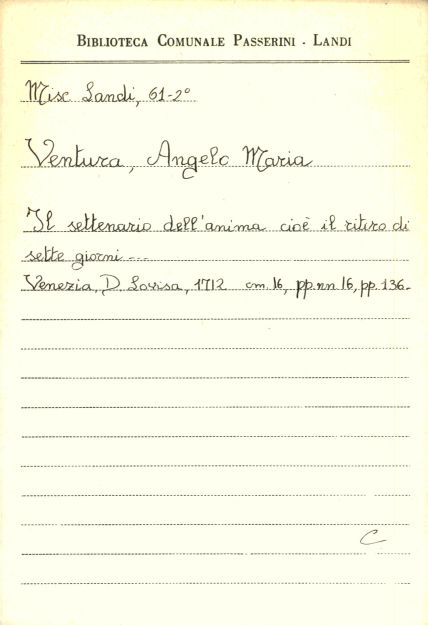 BIBLIOTECA COMUNALE PASSERINI - LANDI
Misc Landi, 61-2°
Ventura, Angelo Maria
Il settenario dell'anima cioè il ritiro di
sette giorni ---
Venezia, D. Lovisa, 1712 cm. 16, pp.nn 16, pp. 136.
C